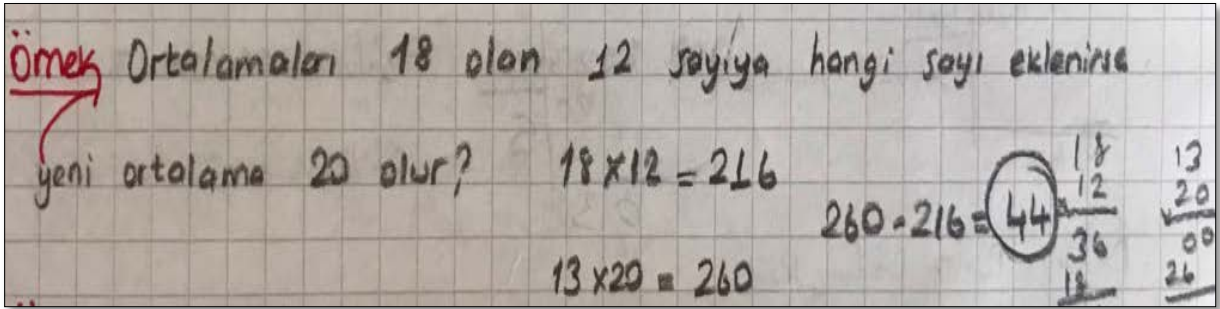 Örnek Ortalamaları 18 olan 12 sayıya hangi sayı eklenirse
yeni ortalama 20 olur? 18x12=216
260-216=44
13x20=260
18
x12
36
18
13
x20
00
26